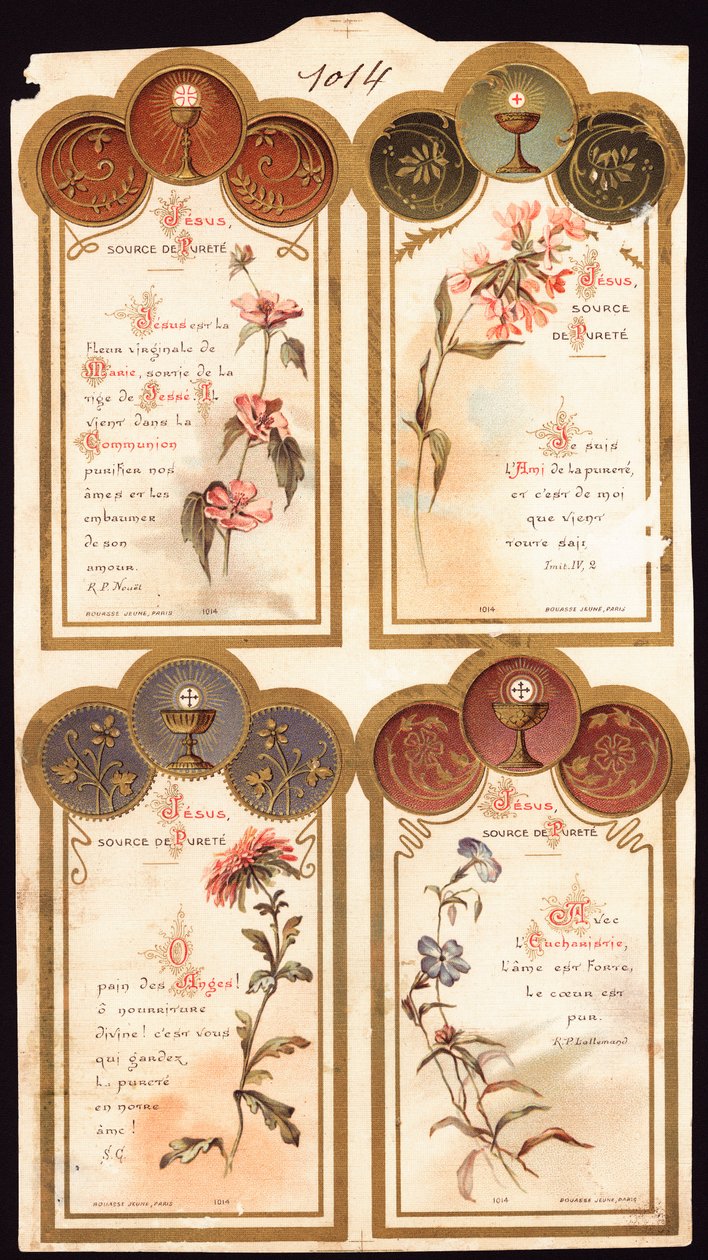 1014
JÉSUS,
SOURCE DE PURETÉ
Jésus est la
Fleur virginale de
Marie, sortie de la
tige de Jessé. Il
vient dans la
Communion
purifier nos
âmes et les
embaumer
de son
amour.
R. P. Nouët
BOUASSE JEUNE, PARIS 1014
JÉSUS,
SOURCE
DE PURETÉ
Je suis
l'Ami de la pureté,
et c'est de moi
que vient
toute
Imit. IV, 2
1014 BOUASSE JEUNE, PARIS
JÉSUS,
SOURCE DE PURETÉ
O
pain des Anges!
ô nourriture
divine! c'est vous
qui gardez
la pureté
en notre
âme!
S. C.
BOUASSE JEUNE, PARIS 1014
JÉSUS,
SOURCE DE PURETÉ
Avec
l'Eucharistie,
l'âme est forte,
le cœur est
pur.
R. P. Lallemand
1014 BOUASSE JEUNE, PARIS